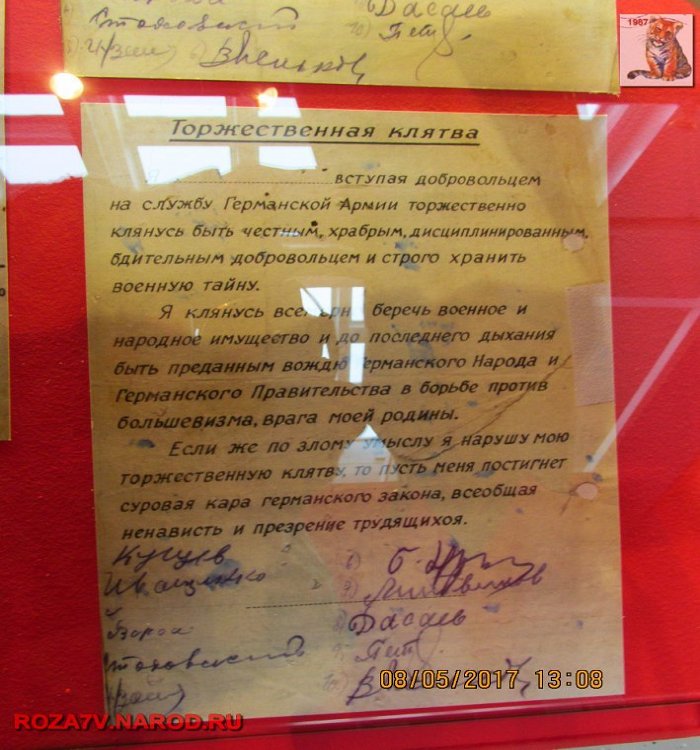 Дасаев
1987
Торжественная клятва
вступая добровольцем
на службу Германской Армии торжественно
клянусь быть честным, храбрым, дисциплинированным,
бдительным добровольцем и строго хранить
военную тайну.
Я клянусь беречь военное и
народное имущество и до последнего дыхания
быть преданным вождю Германского Народа и
Германского Правительства в борьбе против
большевизма, врага моей родины.
Если же по злому умыслу я нарушу мою
торжественную клятву, то пусть меня постигнет
суровая кара германского закона, всеобщая
ненависть и презрение трудящихоя.
Дасаев
08/05/2017 13:08
ROZA7V.NAROD.RU